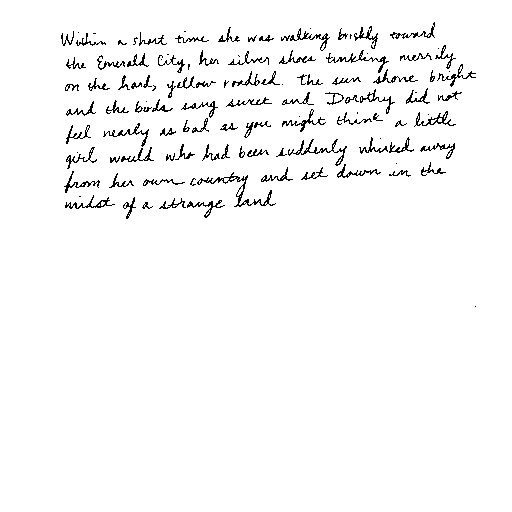 Within a short time she was walking briskly toward
the Emerald City, her silver shoes tinkling merrily
on the hard, yellow roadbed. The sun shone bright
and the birds sang sweet and Dorothy did not
feel nearly as bad as you might think a little
girl would who had been suddenly whisked away
from her own country and set down in the
midst of a strange land